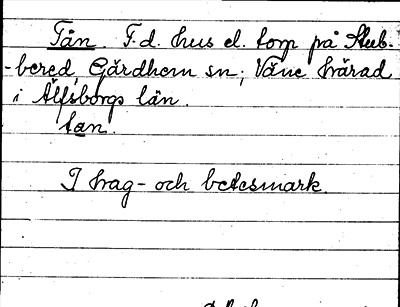 Tån. F.d. hus el. torp på Stub-
-bered, Gärdhem sn; Väne härad
i Älfsborgs län.
tan.
I hag- och betesmark.